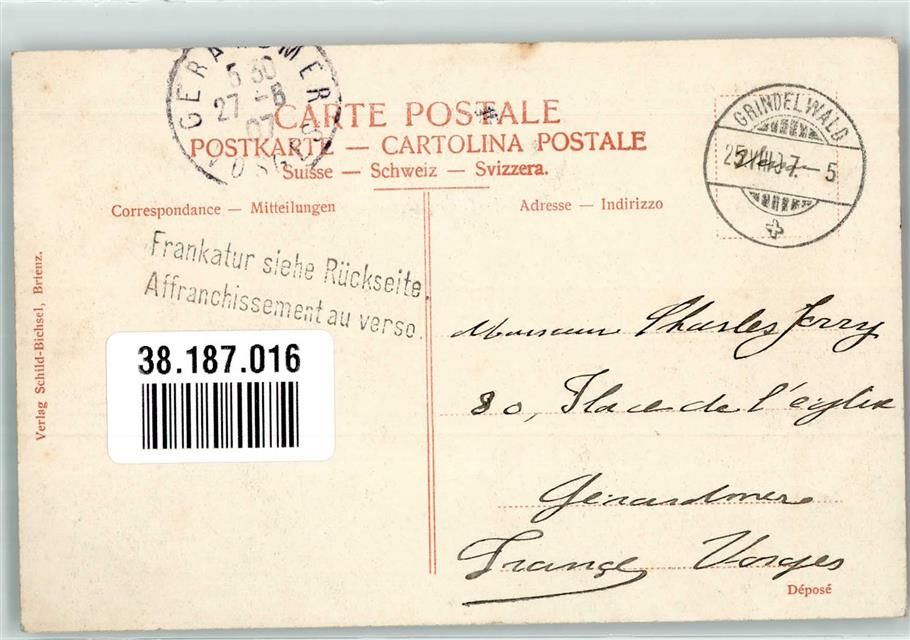 GERARDMER
5 30
27 -8
07
VOSGES
CARTE POSTALE
POSTKARTE — CARTOLINA POSTALE
Suisse — Schweiz — Svizzera.
GRINDELWALD
25 VIII 07 - 5
Correspondance — Mitteilungen
Adresse — Indirizzo
Frankatur siehe Rückseite.
Affranchissement au verso.
Verlag Schild-Bichsel, Brienz.
38.187.016
Monsieur Charles Jerry
80, Place de l'église
Gérardmer
France Vosges
Déposé